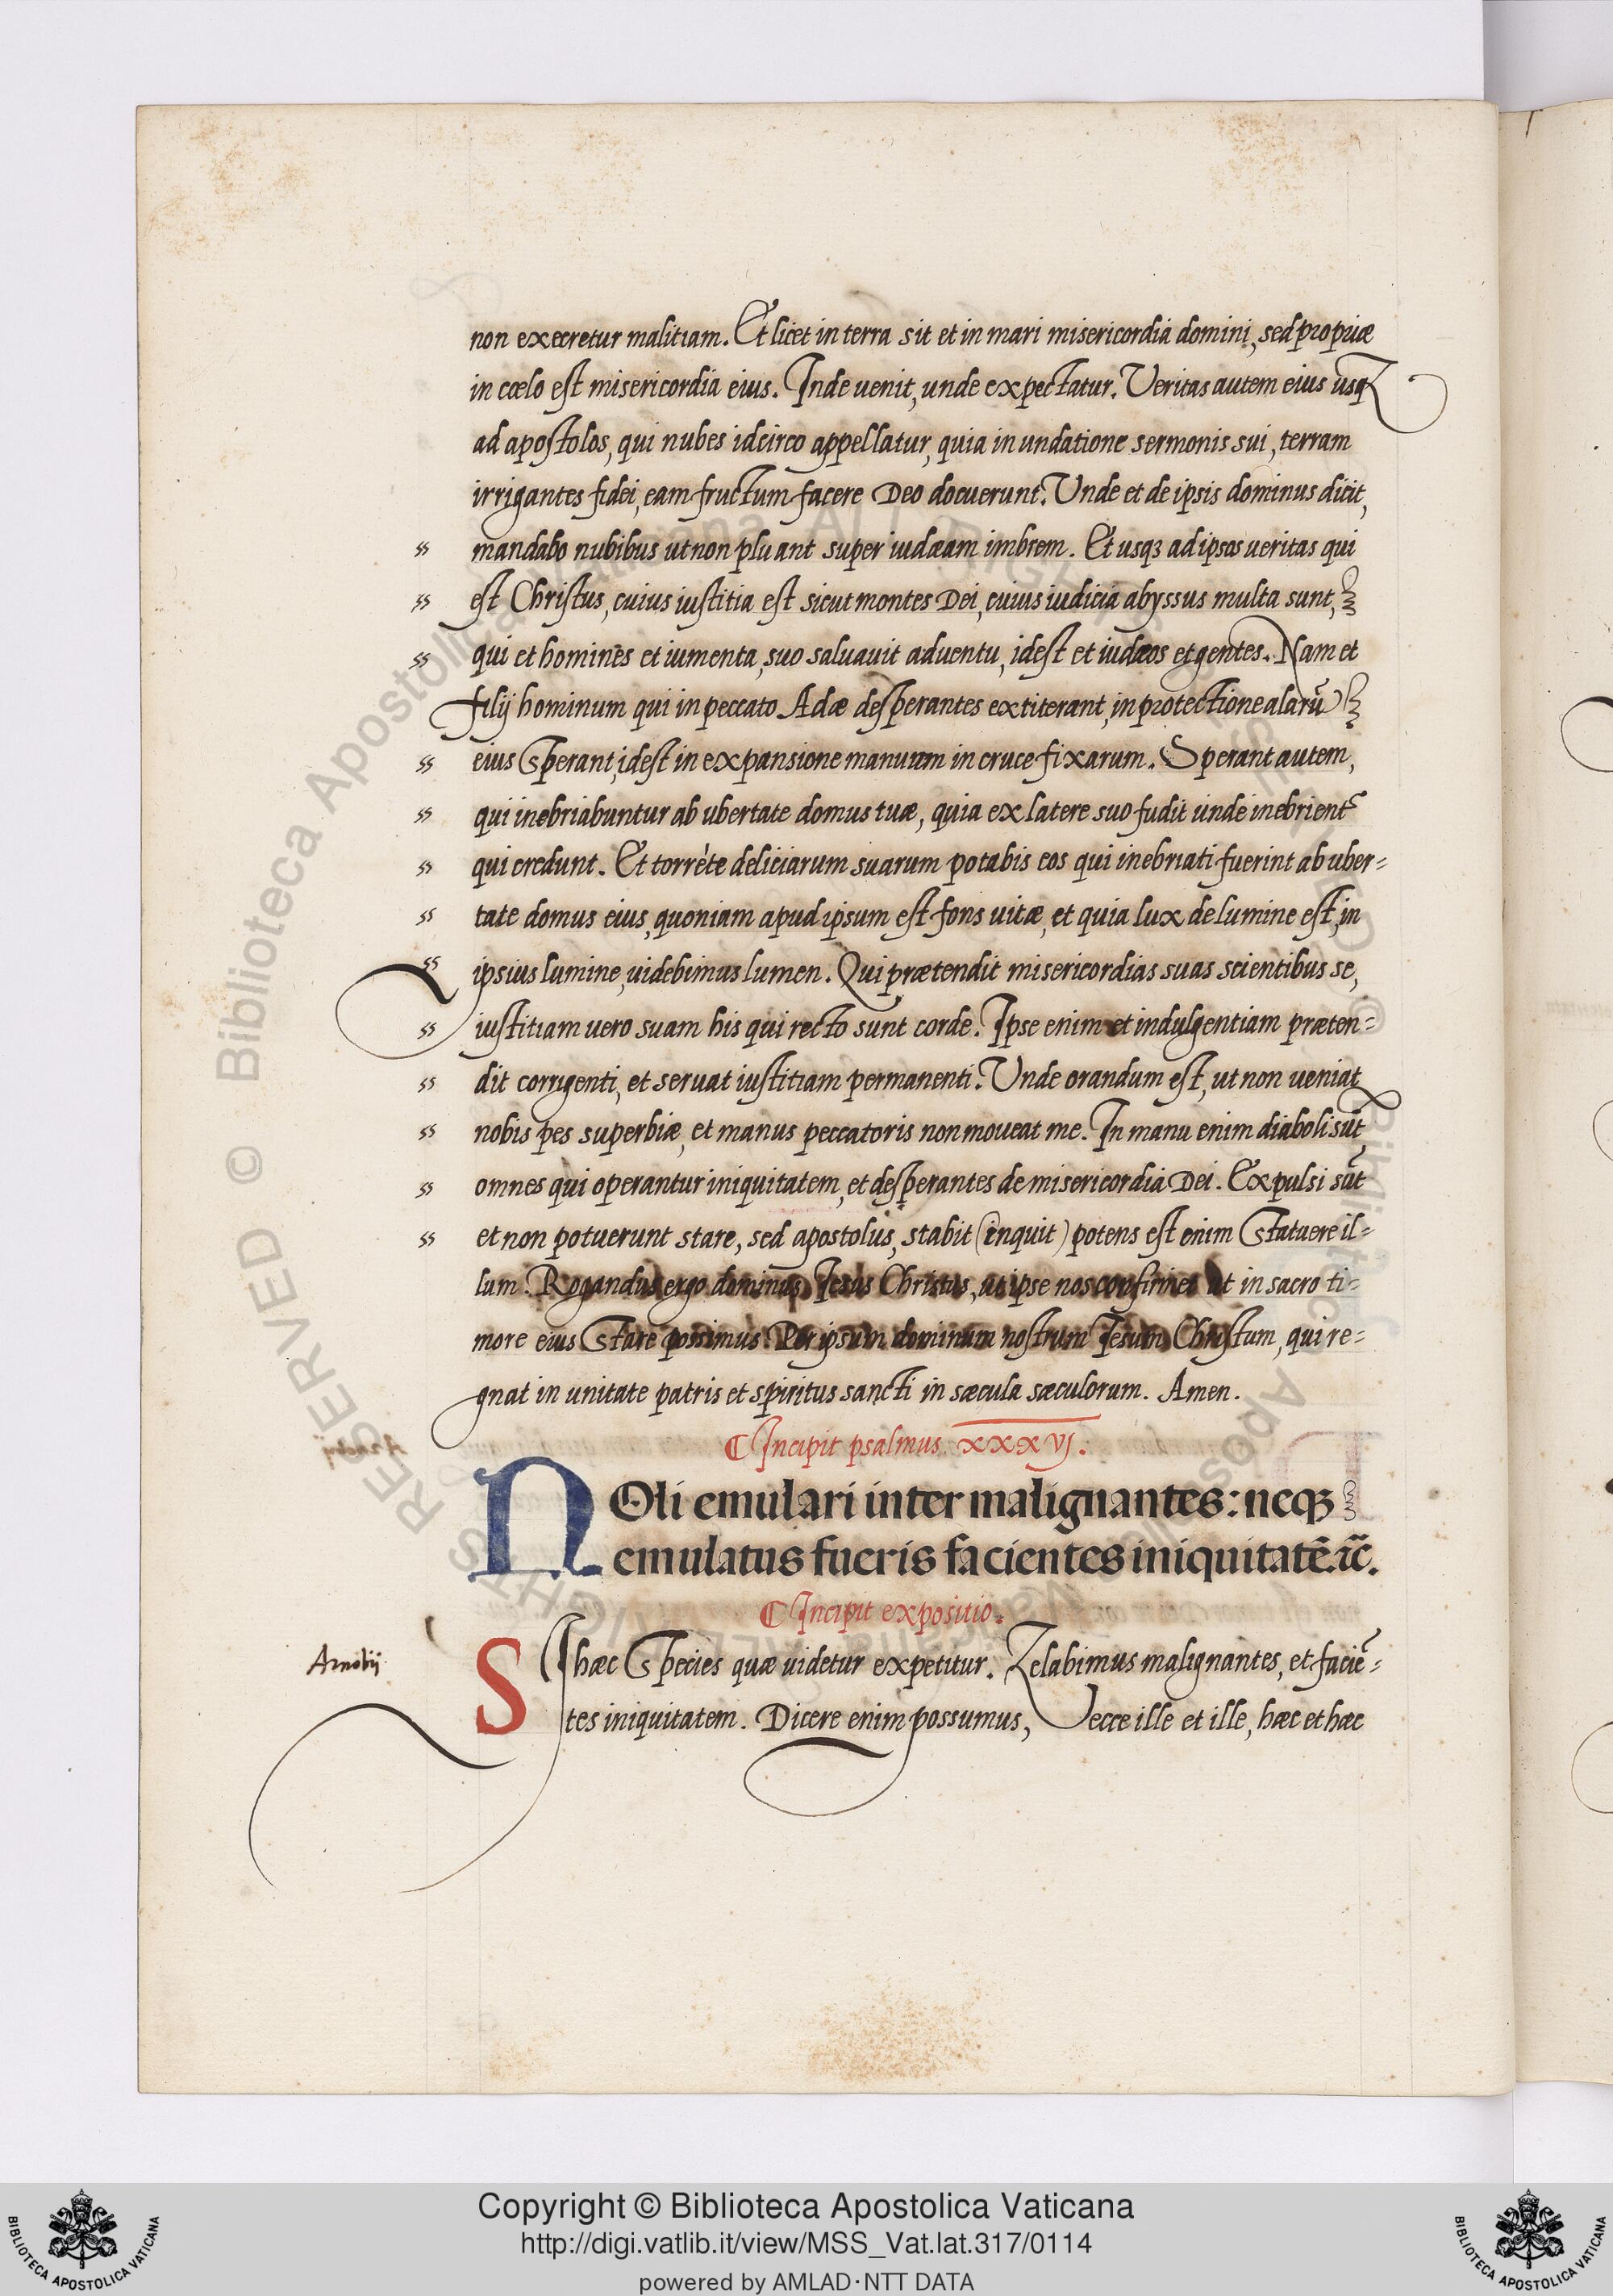 non execretur malitiam. Et licet in terra sit et in mari misericordia domini, sed propriæ
in cœlo est misericordia eius. Inde uenit, unde expectatur. Veritas autem eius usq
ad apostolos, qui nubes idcirco appellatur, quia in undatione sermonis sui, terram
irrigantes fidei, eam fructum facere Deo docuerunt. Unde et de ipsis dominus dicit,
ss mandabo nubibus ut non pluant super iudæam imbrem. Et usqꝫ ad ipsos ueritas qui
ss est Christus, cuius iustitia est sicut montes Dei, cuius iudicia abyssus multa sunt,
ss qui et homines et iumenta, suo saluauit aduentu, idest et iudæos et gentes. Nam et
filij hominum qui in peccato Adæ desperantes extiterant, in protectione alarū
ss eius sperant, idest in expansione manuum in cruce fixarum. Sperant autem,
ss qui inebriabuntur ab ubertate domus tuæ, quia ex latere suo fudit unde inebrient᷑
ss qui credunt. Et torrēte deliciarum suarum potabis eos qui inebriati fuerint ab uber=
ss tate domus eius, quoniam apud ipsum est fons uitæ, et quia lux de lumine est, in
ss ipsius lumine, uidebimus lumen. Qui prætendit misericordias suas scientibus se,
ss iustitiam uero suam his qui recto sunt corde. Ipse enim et indulgentiam præten=
ss dit corrigenti, et seruat iustitiam permanenti. Unde orandum est, ut non ueniat
ss nobis pes superbiæ, et manus peccatoris non moueat me. In manu enim diaboli sūt
ss omnes qui operantur iniquitatem, et desperantes de misericordia Dei. Expulsi sūt
ss et non potuerunt stare, sed apostolus, stabit (inquit) potens est enim statuere il=
lum. Rogandus ergo dominus Jesus Christus, ut ipse nos confirmet ut in sacro ti=
more eius stare possimus. Per ipsum dominum nostrum Jesum Christum, qui re=
gnat in unitate patris et spiritus sancti in sæcula sæculorum. Amen.
¶ Incipit psalmus xxxvj.
NOli emulari inter malignantes: neqꝫ
emulatus fueris facientes iniquitatē. ⁊c̄.
¶ Incipit expositio.
Arnobij
SI hæc species quæ uidetur expetitur. Zelabimus malignantes, et faciē=
tes iniquitatem. Dicere enim possumus, Vecce ille et ille, hæc et hæc
© Biblioteca Apostolica Vaticana
Copyright © Biblioteca Apostolica Vaticana
http://digi.vatlib.it/view/MSS_Vat.lat.317/0114
powered by AMLAD·NTT DATA
BIBLIOTECA APOSTOLICA VATICANA
BIBLIOTECA APOSTOLICA VATICANA